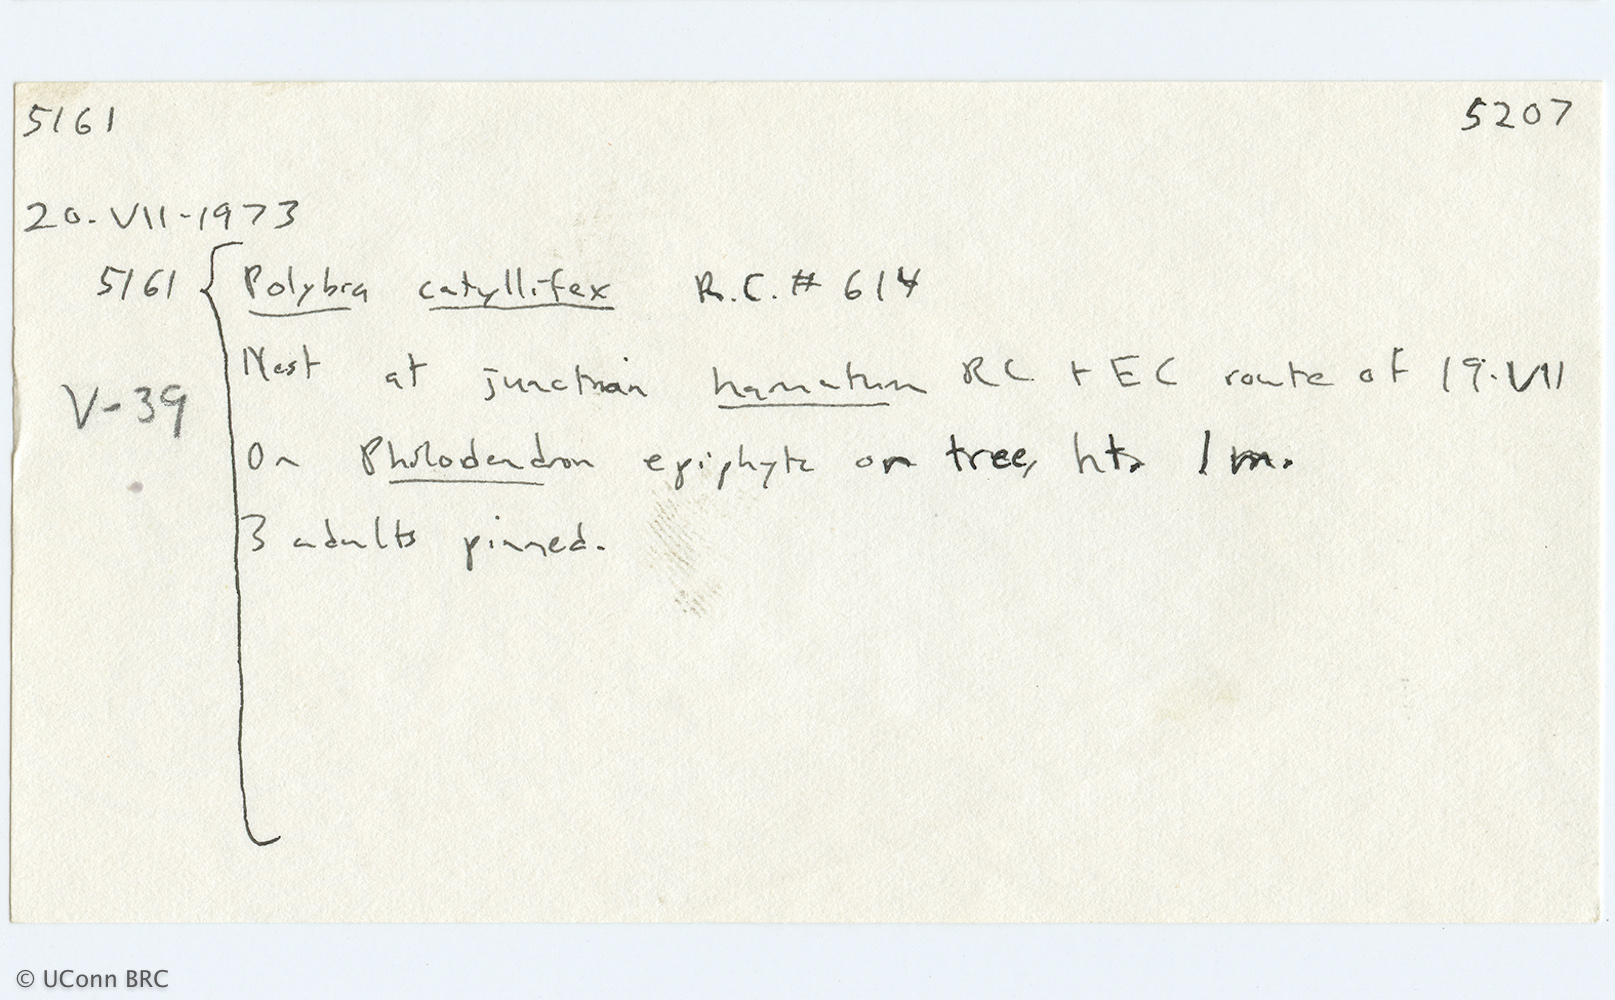 5161 5207
20-VII-1973
5161 Polybia catyllifex R.C. # 614
Nest at junction hamatum RC + EC route of 19-VII
V-39
On Philodendron epiphyte on tree, ht. 1 m.
3 adults pinned.
© UConn BRC